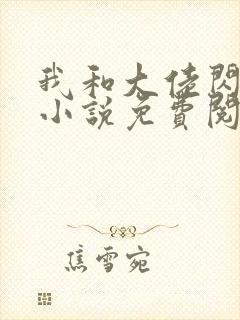 我和大佬閃
小說免費閱
焦雪宛